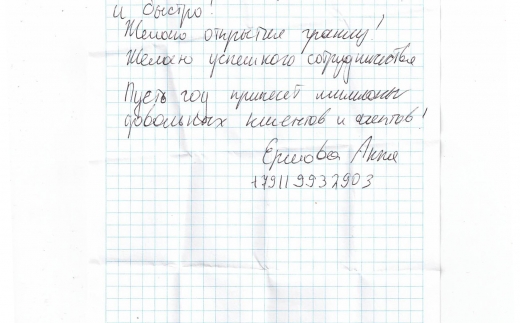 и быстро!
Желаю открытия границ!
Желаю успешного сотрудничества
Пусть год принесет миллионы
довольных клиентов и агентов!
Ермова Анна
+79119932903